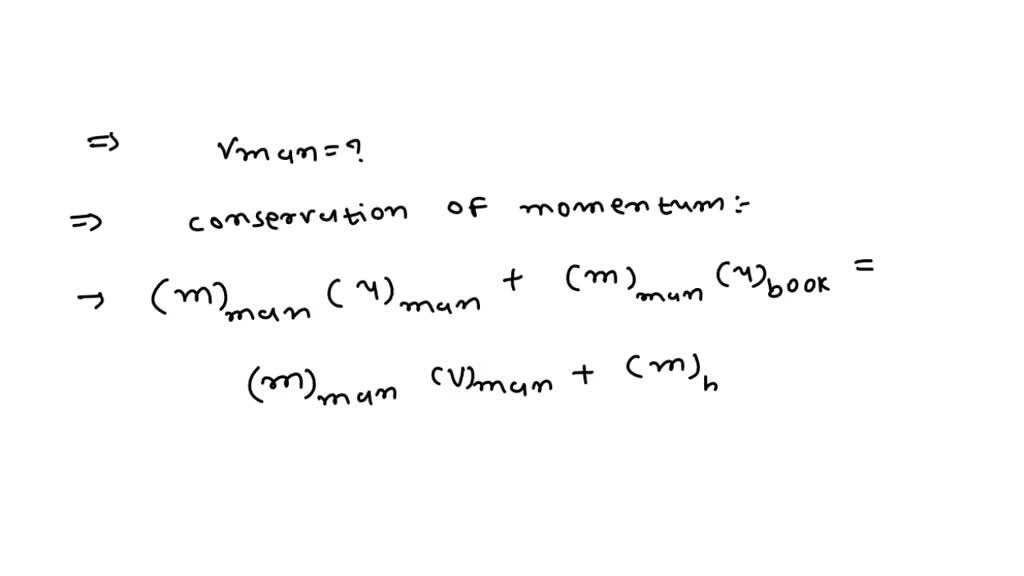 ⇒ Vman = ?
⇒ conservation of momentum :-
→ (m)man (u)man + (m)man (u)book =
(m)man (V)man + (m)b